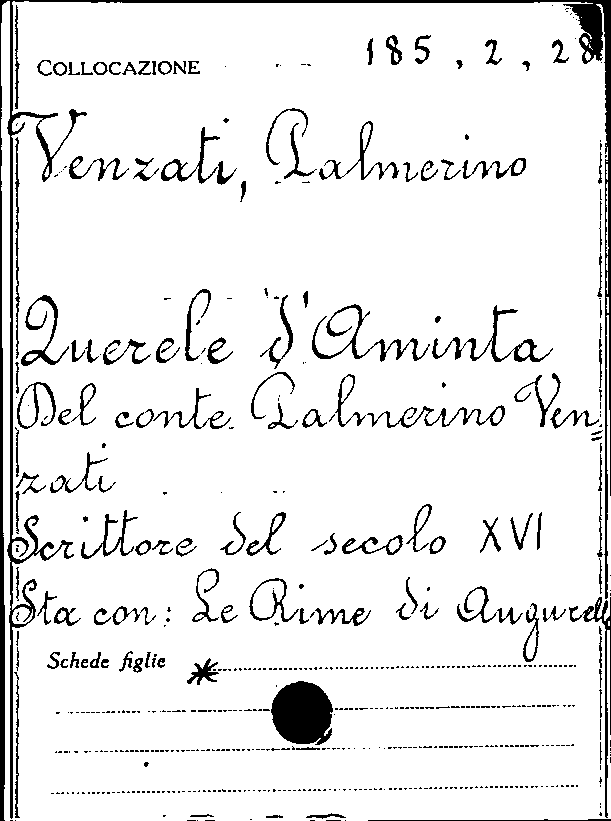 COLLOCAZIONE 185, 2, 28
Venzati, Palmerino
Querele d'Aminta
Del conte Palmerino Ven=
zati
Scrittore del secolo XVI
Sta con: Le Rime di Augurelli
Schede figlie *